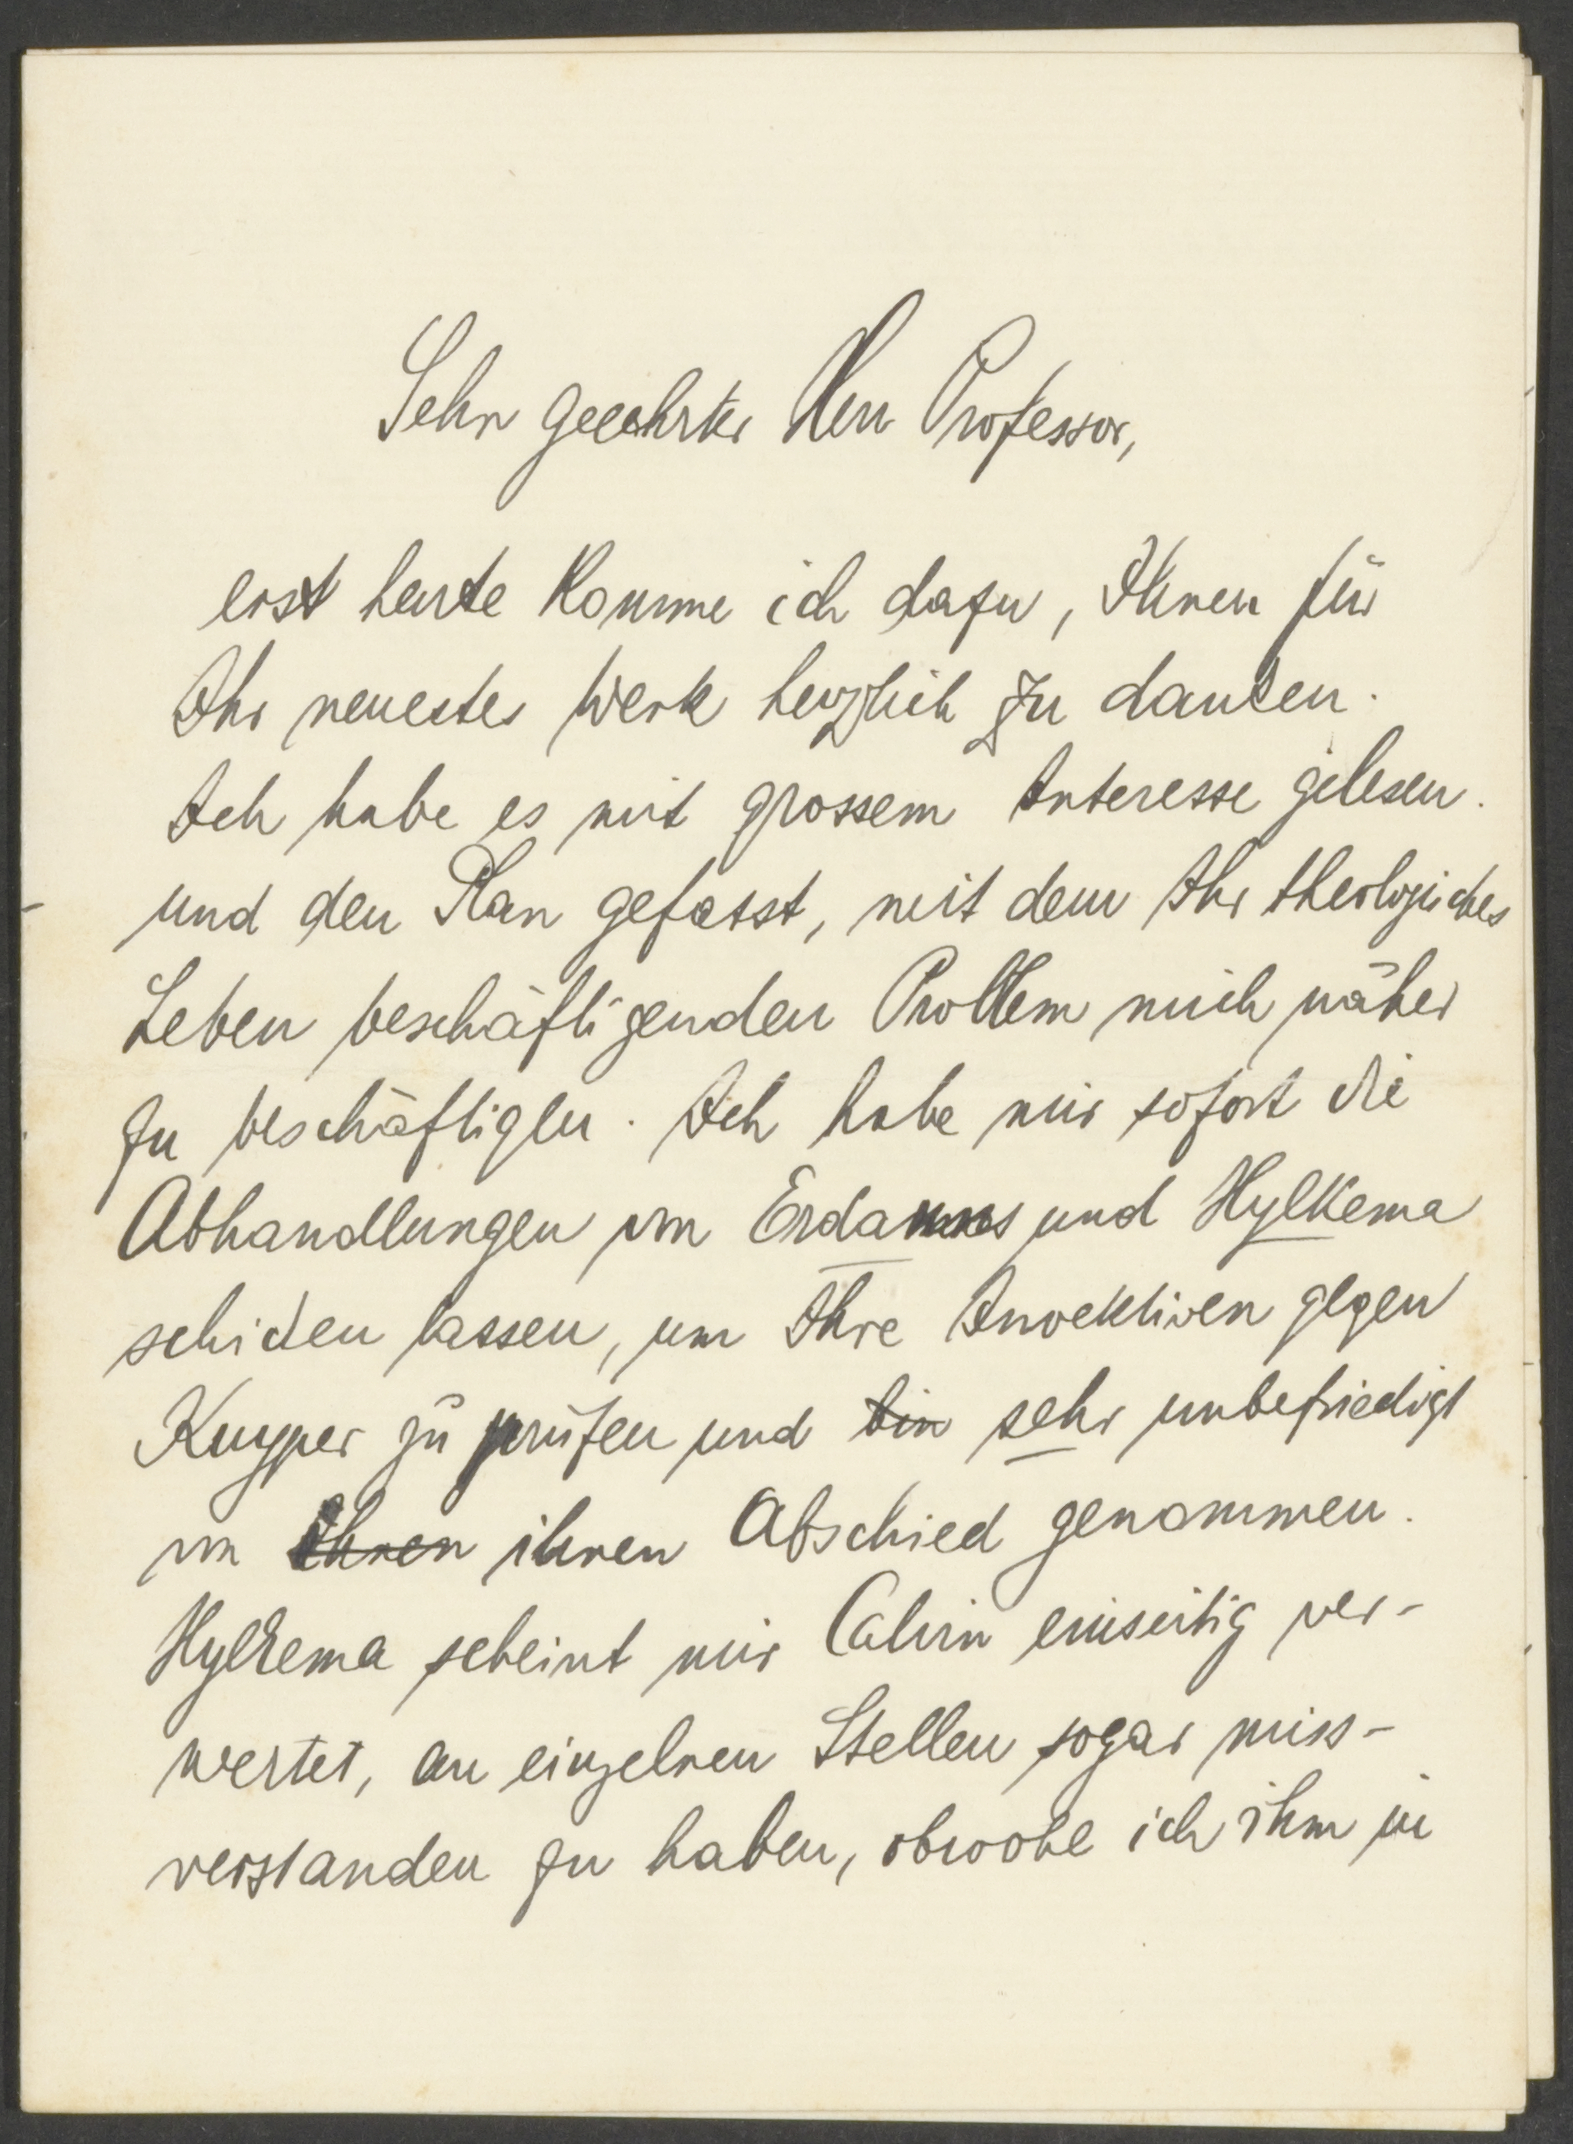 Sehr geehrter Herr Professor,
erst heute komme ich dazu, Ihnen für
Ihr neuestes Werk herzlich zu danken.
Ich habe es mit grossem Interesse gelesen.
und den Plan gefasst, mit dem Ihr theologisches
Leben beschäftigenden Problem mich näher
zu beschäftigen. Ich habe mir sofort die
Abhandlungen von Erdmans und Hylkema
schicken lassen, um Ihre Invektiven gegen
Kuyper zu prüfen und bin sehr unbefriedigt
von Ihren ihnen Abschied genommen.
Hylkema scheint mir Calvin einseitig ver-
wertet, an einzelnen Stellen sogar miss-
verstanden zu haben, obwohl ich ihm in